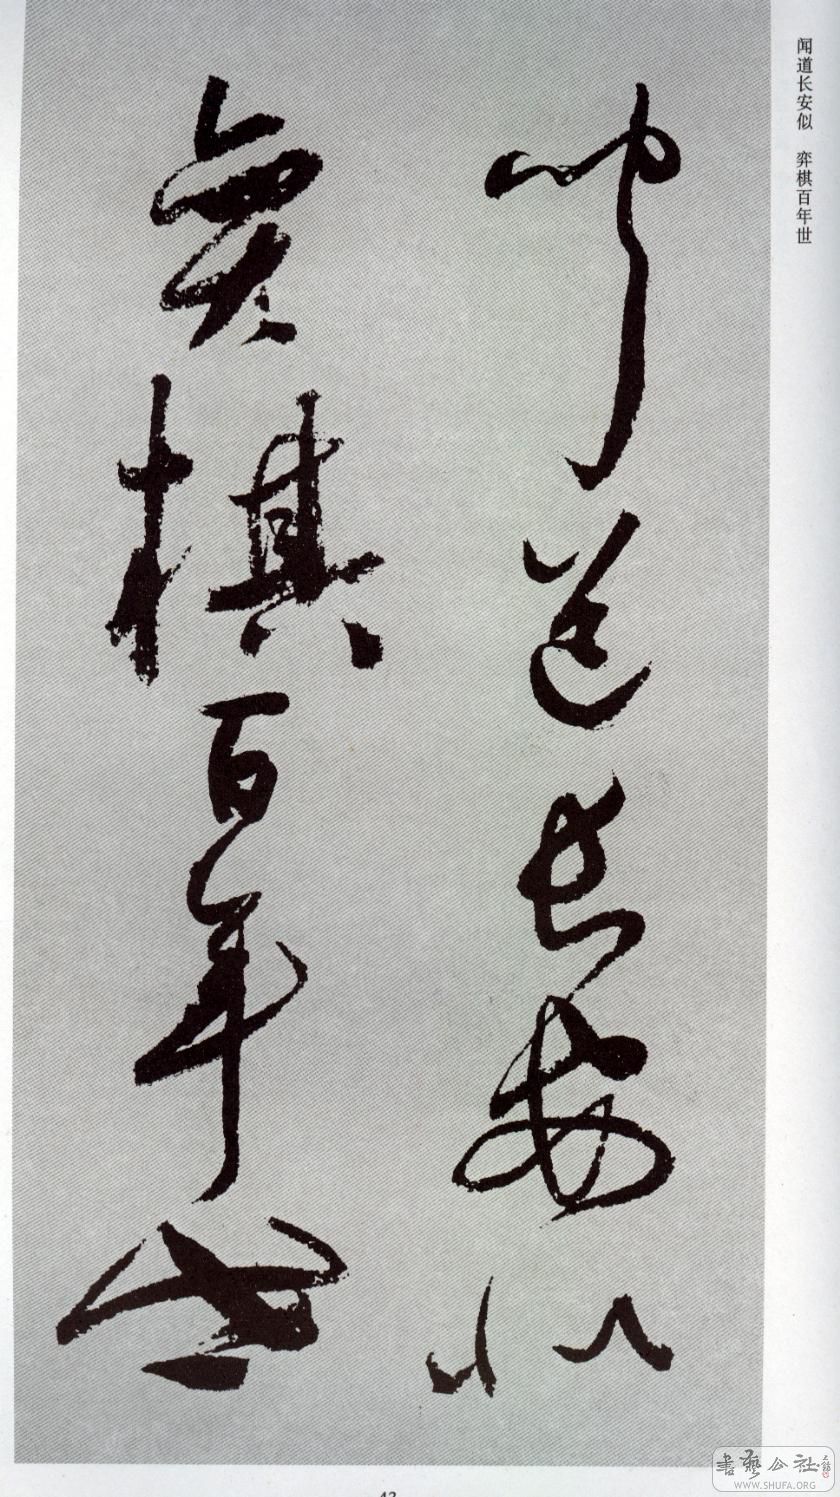 闻道长安似 弈棋百年世
闻道长安似
弈棋百年世
43
書藝公社
WWW.SHUFA.ORG